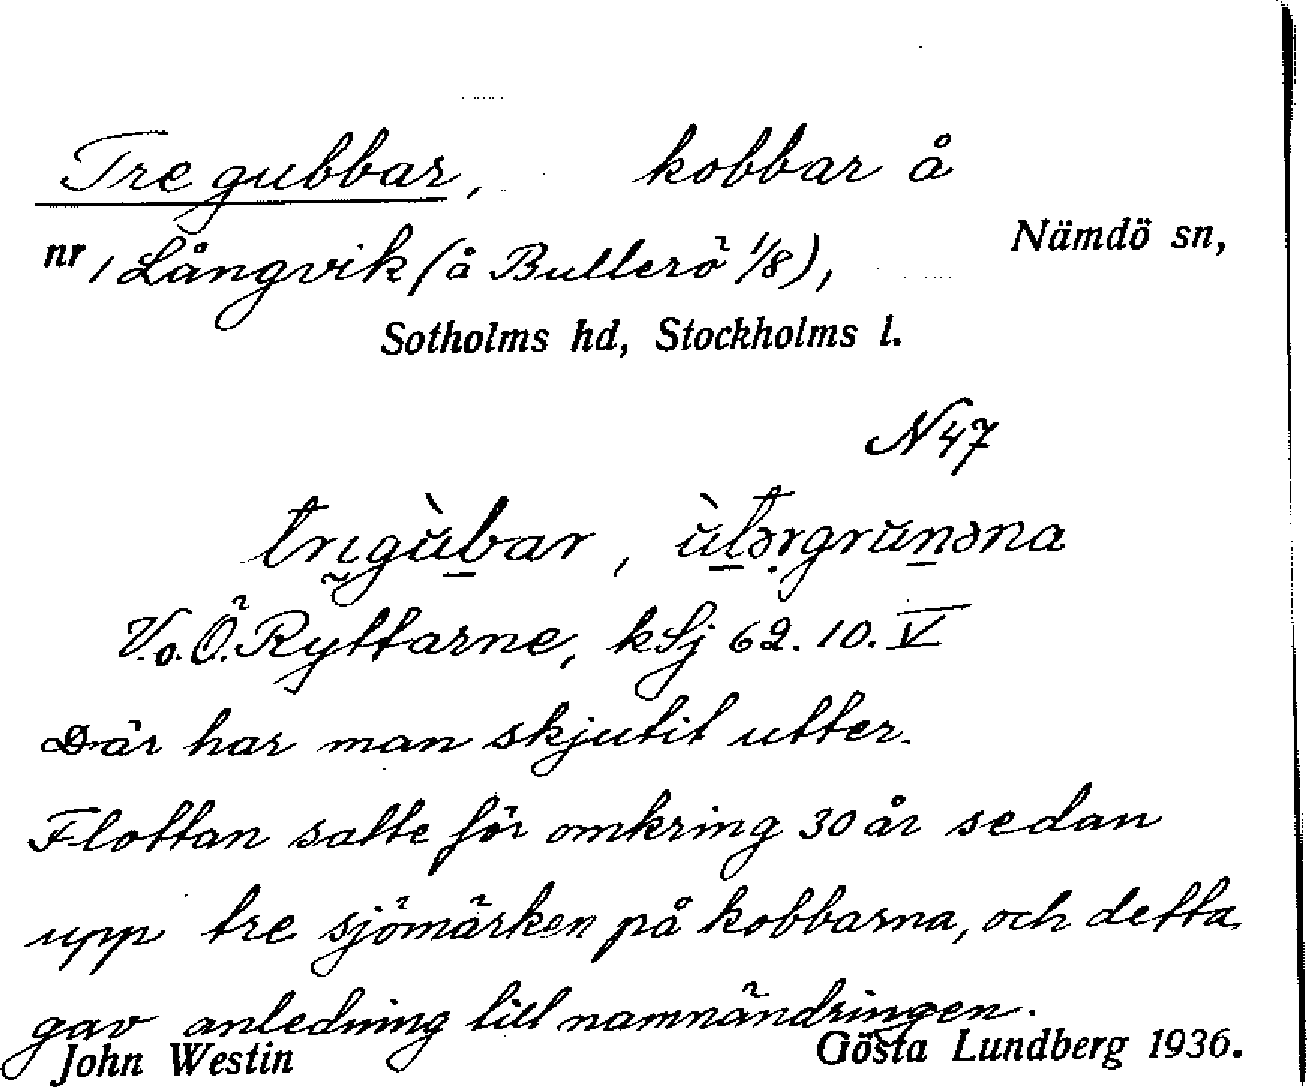 Tre gubbar, kobbar å
nr 1 Långvik (å Bullerö 1/8), Nämdö sn,
Sotholms hd, Stockholms l.
N 47
trıgùbar, ùtərgrunəna
V. o. Ö. Ryttarne, kSj 62. 10. V
Där har man skjutit utter.
Flottan satte för omkring 30 år sedan
upp tre sjömärken på kobbarna, och detta
gav anledning till namnändringen.
John Westin Gösta Lundberg 1936.